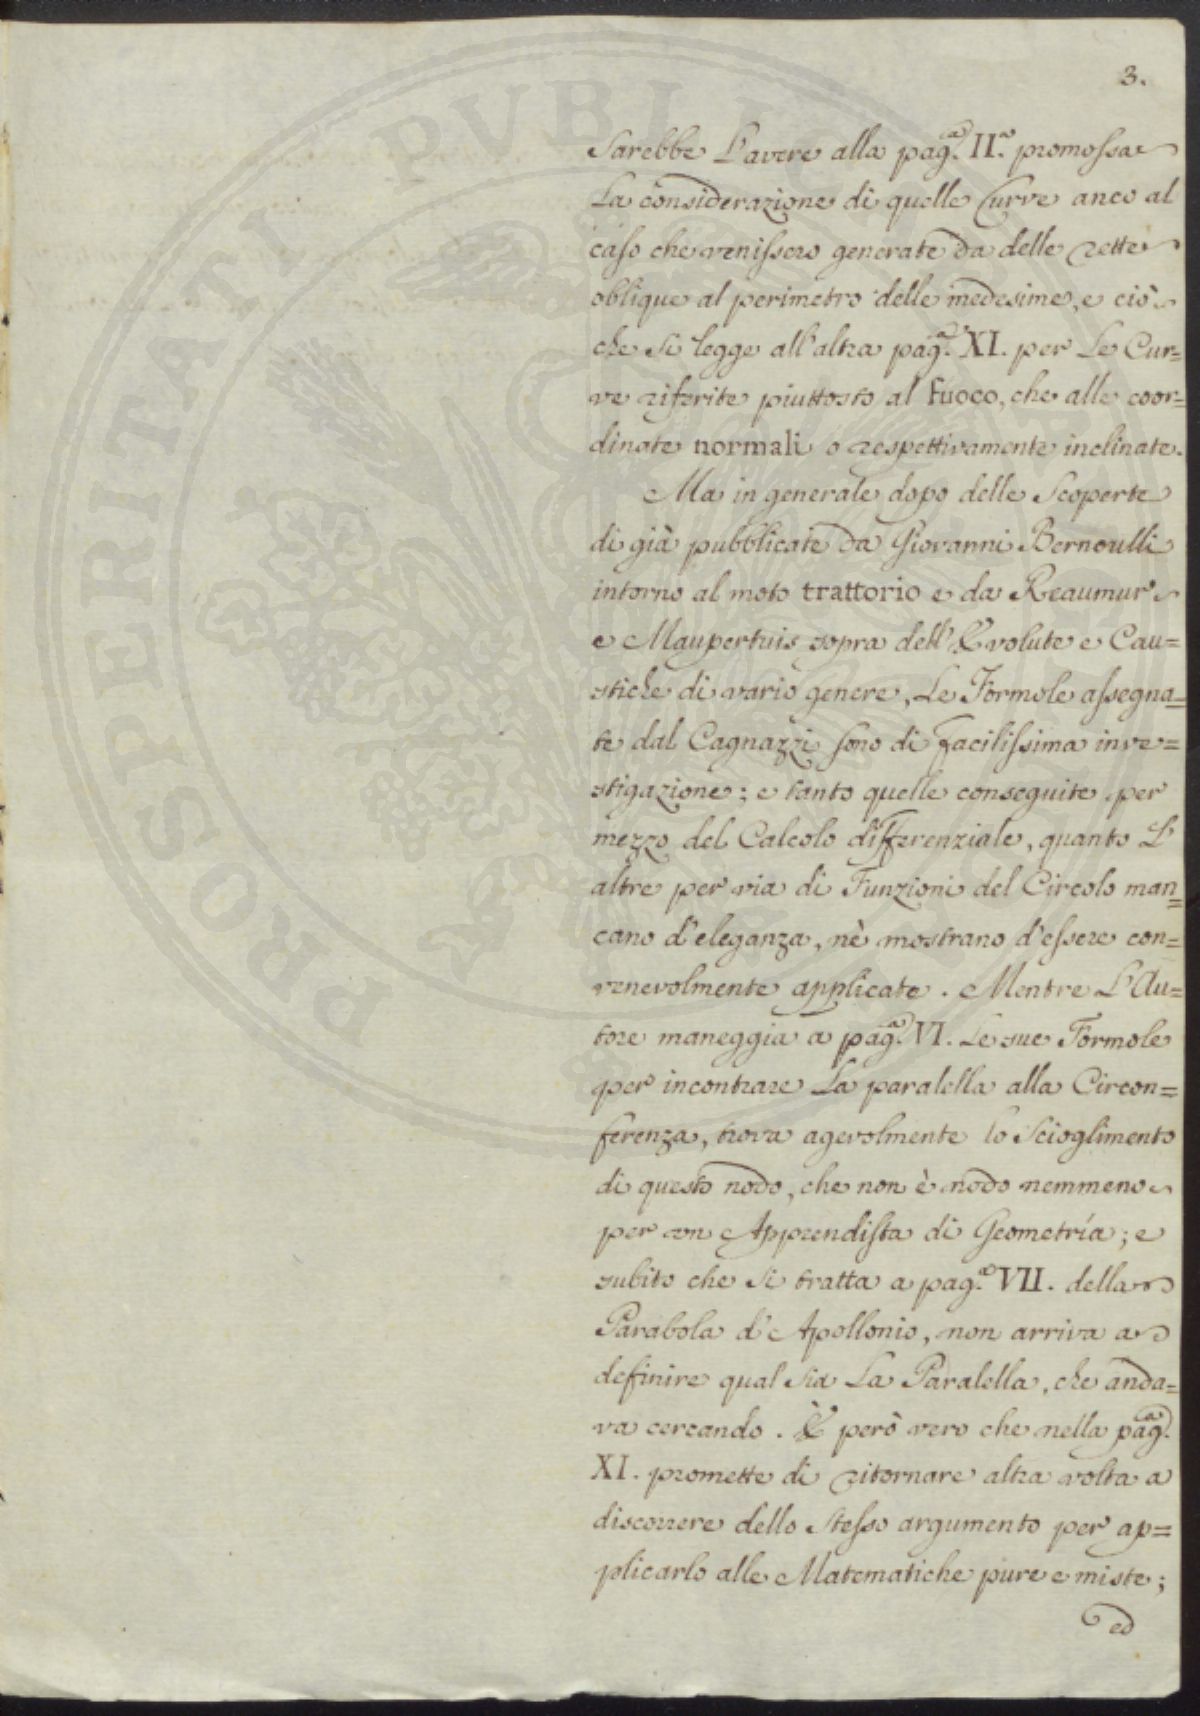 3.
Sarebbe L'avere alla pag.ª II.ª promossa
La considerazione di quelle Curve anco al
caso che venissero generate da delle rette
oblique al perimetro delle medesime, e ciò
che si legge all'altra pag.ª XI. per Le Cur=
ve riferite piuttosto al fuoco, che alle coor=
dinate normali o respettivamente inclinate.
Ma in generale dopo delle Scoperte
di già pubblicate da Giovanni Bernoulli
intorno al moto trattorio e da Reaumur
e Maupertuis sopra dell'Evolute e Cau=
stiche di vario genere, Le Formole assegna=
te dal Cagnazzi sono di facilissima inve=
stigazione; e tanto quelle conseguite per
mezzo del Calcolo differenziale, quanto L'
altre per via di Funzioni del Circolo man=
cano d'eleganza, nè mostrano d'essere con=
venevolmente applicate. Mentre L'Au=
tore maneggia a pag.ª VI. Le sue Formole
per incontrare La paralella alla Circon=
ferenza, trova agevolmente lo Scioglimento
di questo nodo, che non è nodo nemmeno
per un Apprendista di Geometría; e
subito che si tratta a pag.ª VII. della
Parabola d'Apollonio, non arriva a
definire qual sia La Paralella, che anda=
va cercando. È però vero che nella pag.ª
XI. promette di ritornare altra volta a
discorrere dello Stesso argumento per ap=
plicarlo alle Matematiche pure e miste;
ed
PROSPERITATI PUBLICAE